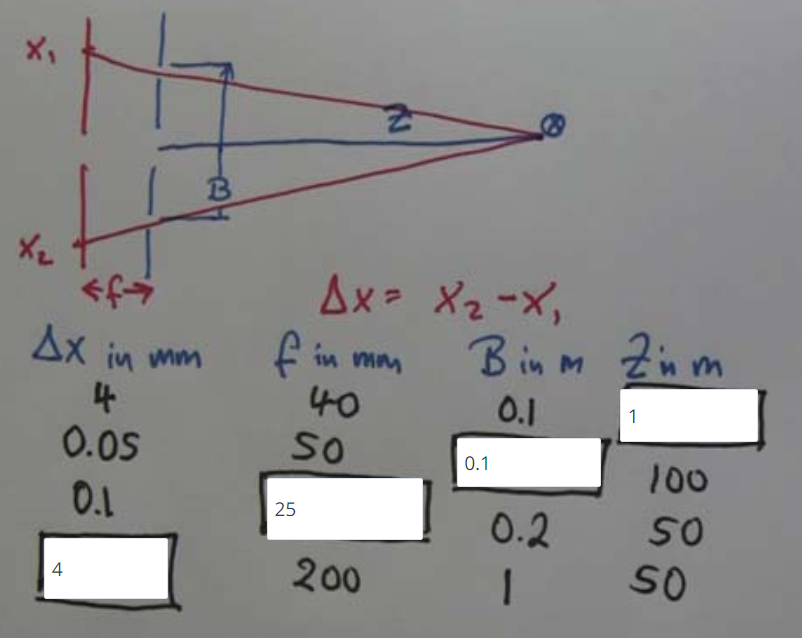 x₁
Z
B
x₂
f
Δx = x₂ - x₁
Δx in mm f in mm B in m Z in m
4 40 0.1 1
0.05 50 0.1 100
0.1 25 0.2 50
4 200 1 50